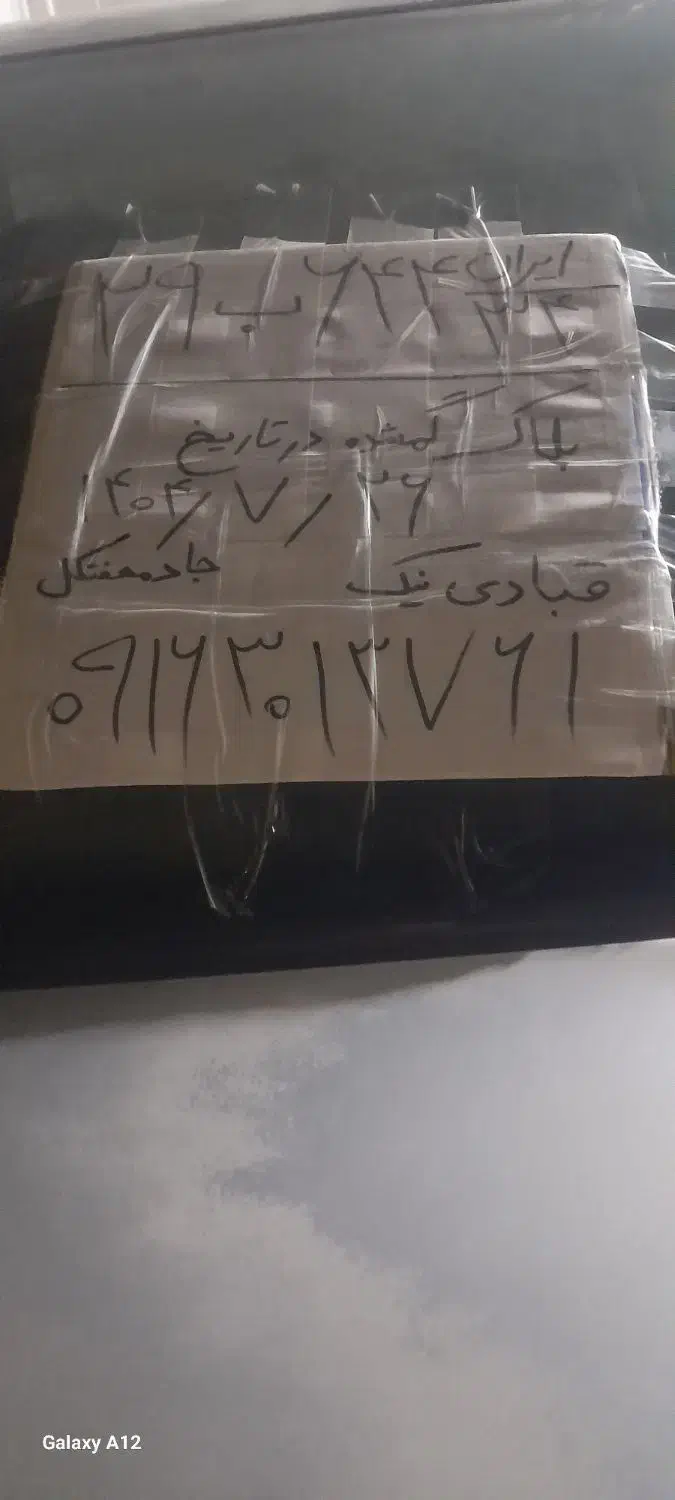 ۳۹ ب ۶۴۴ ایران ۳۴
پلاک گمشده در تاریخ
۱۴۰۴/۷/۲۶
قبادی نیک جاده هفتکل
۰۹۱۶۳۰۱۳۷۶۱
Galaxy A12